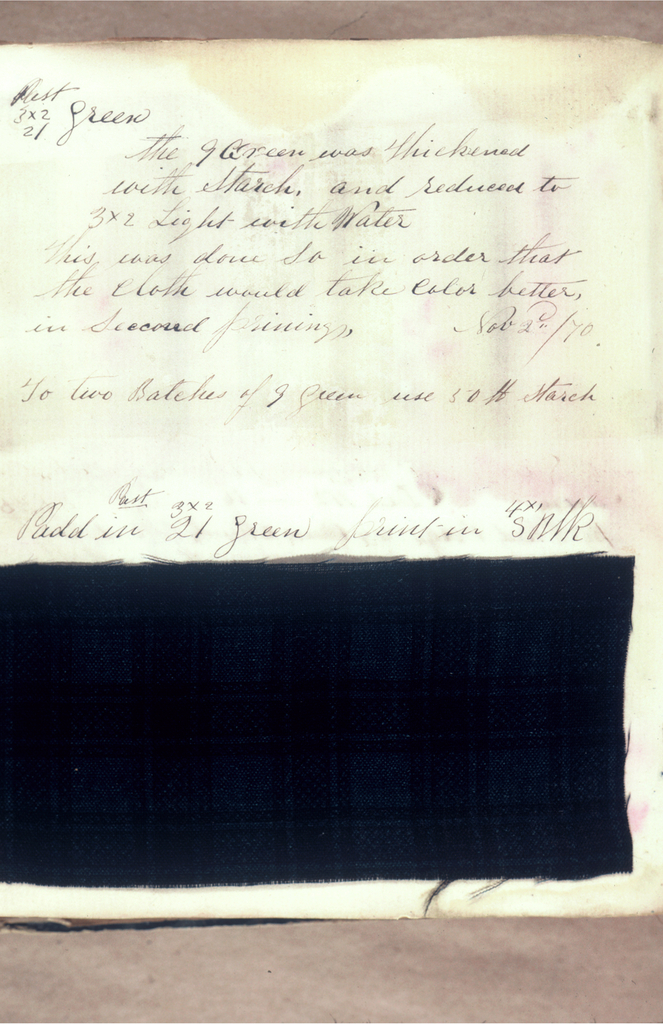 Past
3x2
21 Green
the 9 Green was Thickened
with Starch, and reduced to
3x2 Light with Water
This was done So in order that
the Cloth would take Color better,
in Second prining,
Nov 2d/70.
To two Batches of 9 Green use 50 lb Starch
Past
Padd in 3x2 21 Green print in 4x1 5 Blk